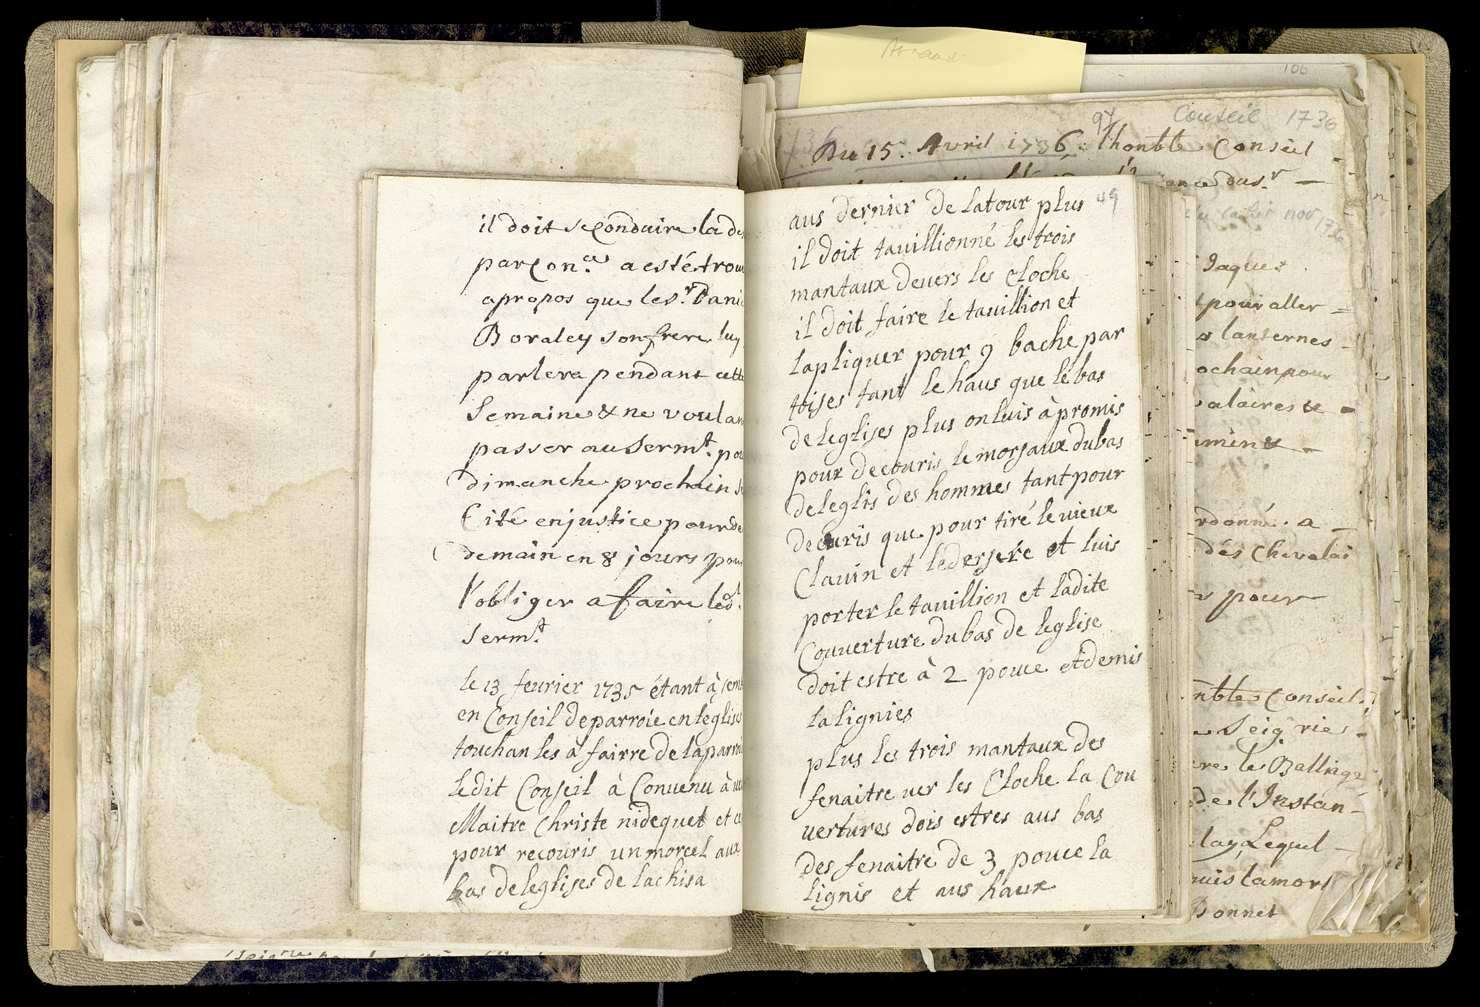 il doit se Conduire la de
par Con.ce a esté trouu
apropos que le sr. Dani
Boraley son frere luy
parlera pendant cette
Semaine & ne voulan
passer au Serm.t pou
dimanche prochain se
Cité en justice pour de
demain en 8 jours pour
l'obliger a faire led.t
Serm.t
le 13 feurier 1735 étant à sem
en Conseil de parroie en leglise
touchan les à fairre de la parro
ledit Conseil à Conuenu à
Maitre Christe nidequet et
pour recouris un morcel aux
bas de leglises de lachisa
49
aus dernier de la tour plus
il doit tauillionné les trois
mantaux deuers les Cloche
il doit faire le tauillion et
lapliquer pour 9 bache par
toises tant le haus que le bas
de leglises plus on luis à promis
pour decouris le morsaux du bas
de leglis des hommes tant pour
decouris que pour tiré le vieux
Clauin et le dersere et luis
porter le tauillion et ladite
Couuerture du bas de leglise
doit estre à 2 pouce et demis
la lignies
plus les trois mantaux des
fenaitre uer les Cloche la Cou
uertures dois estres aus bas
des fenaitre de 3 pouce la
lignis et aus haux
106
Conseil 1736
97
Du 15. Avril 1736. l'honble Conseil
Jaques
pour aller
lanternes
ochain pour
alaires &
ordonné. a
des Chevalai
pour
nble Conseil.
Seigrie
le Ballingé
de l'Instan
lay Lequel
puis la mort
Bonnet